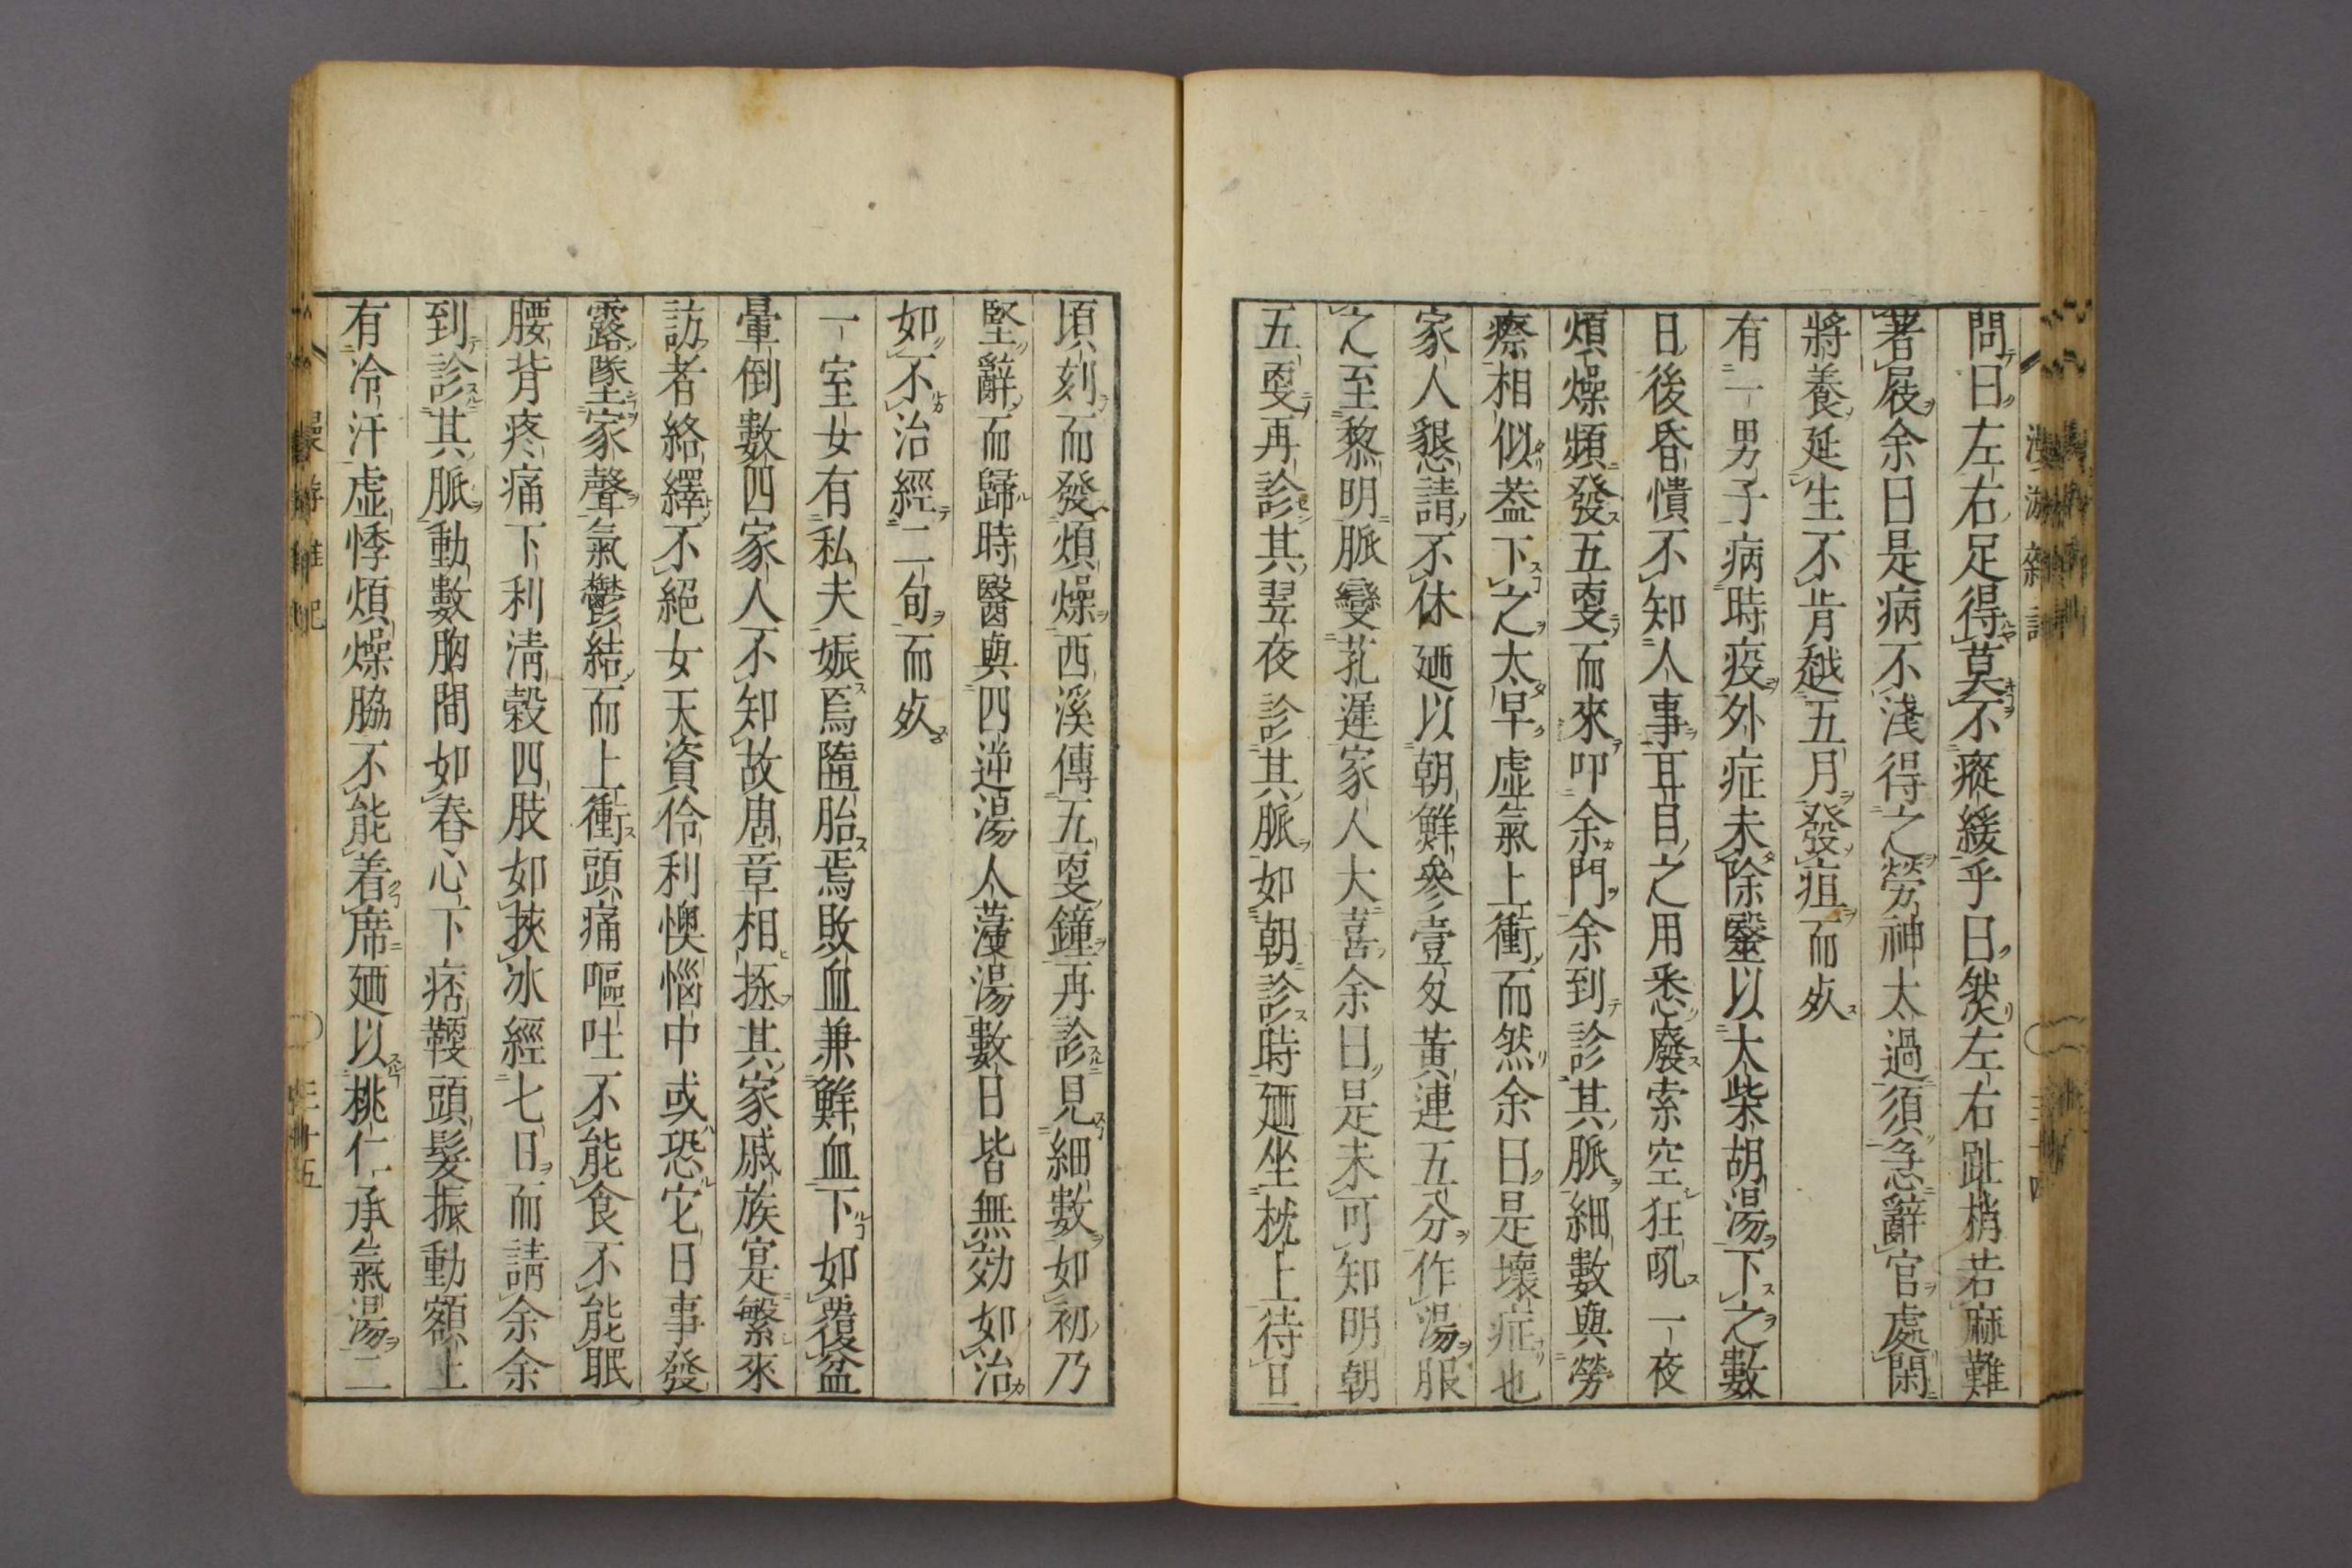 問曰左右足得莫不瘲緩乎曰然左右趾梢若麻難
著屐余曰是病不淺得之勞神太過須急辭官處閑
將養延生不肯越五月發疽而歿
有一男子病時疫外症未除醫以大柴胡湯下之數
日後昏憒不知人事耳目之用悉廢索空狂吼一夜
煩燥頻發五更而來叩余門余到診其脈細數與勞
瘵相似蓋下之太早虛氣上衝而然余曰是壞症也
家人懇請不休廼以朝鮮參壹匁黃連五分作湯服
之至黎明脈變芤遲家人大喜余曰是未可知明朝
五更再診其翌夜診其脈如朝診時廼坐枕上待旦
頃刻而發煩燥西溪傳五更鐘再診見細數如初乃
堅辭而歸時醫與四逆湯人蓡湯數日皆無効如治
如不治經二旬而歿
一室女有私夫娠焉隨胎焉敗血兼鮮血下如覆盆
暈倒數四家人不知故周章相拯其家戚族寔繁來
訪者絡繹不絕女天資伶利懊惱中或恐它日事發
露墜家聲氣鬱結而上衝頭痛嘔吐不能食不能眠
腰背疼痛下利淸穀四肢如挾冰經七日而請余余
到診其脈動數胸間如舂心下痞鞕頭髮振動額上
有冷汗虛悸煩燥脇不能着席廼以桃仁承氣湯二
漫游雜記
三十四
三十五